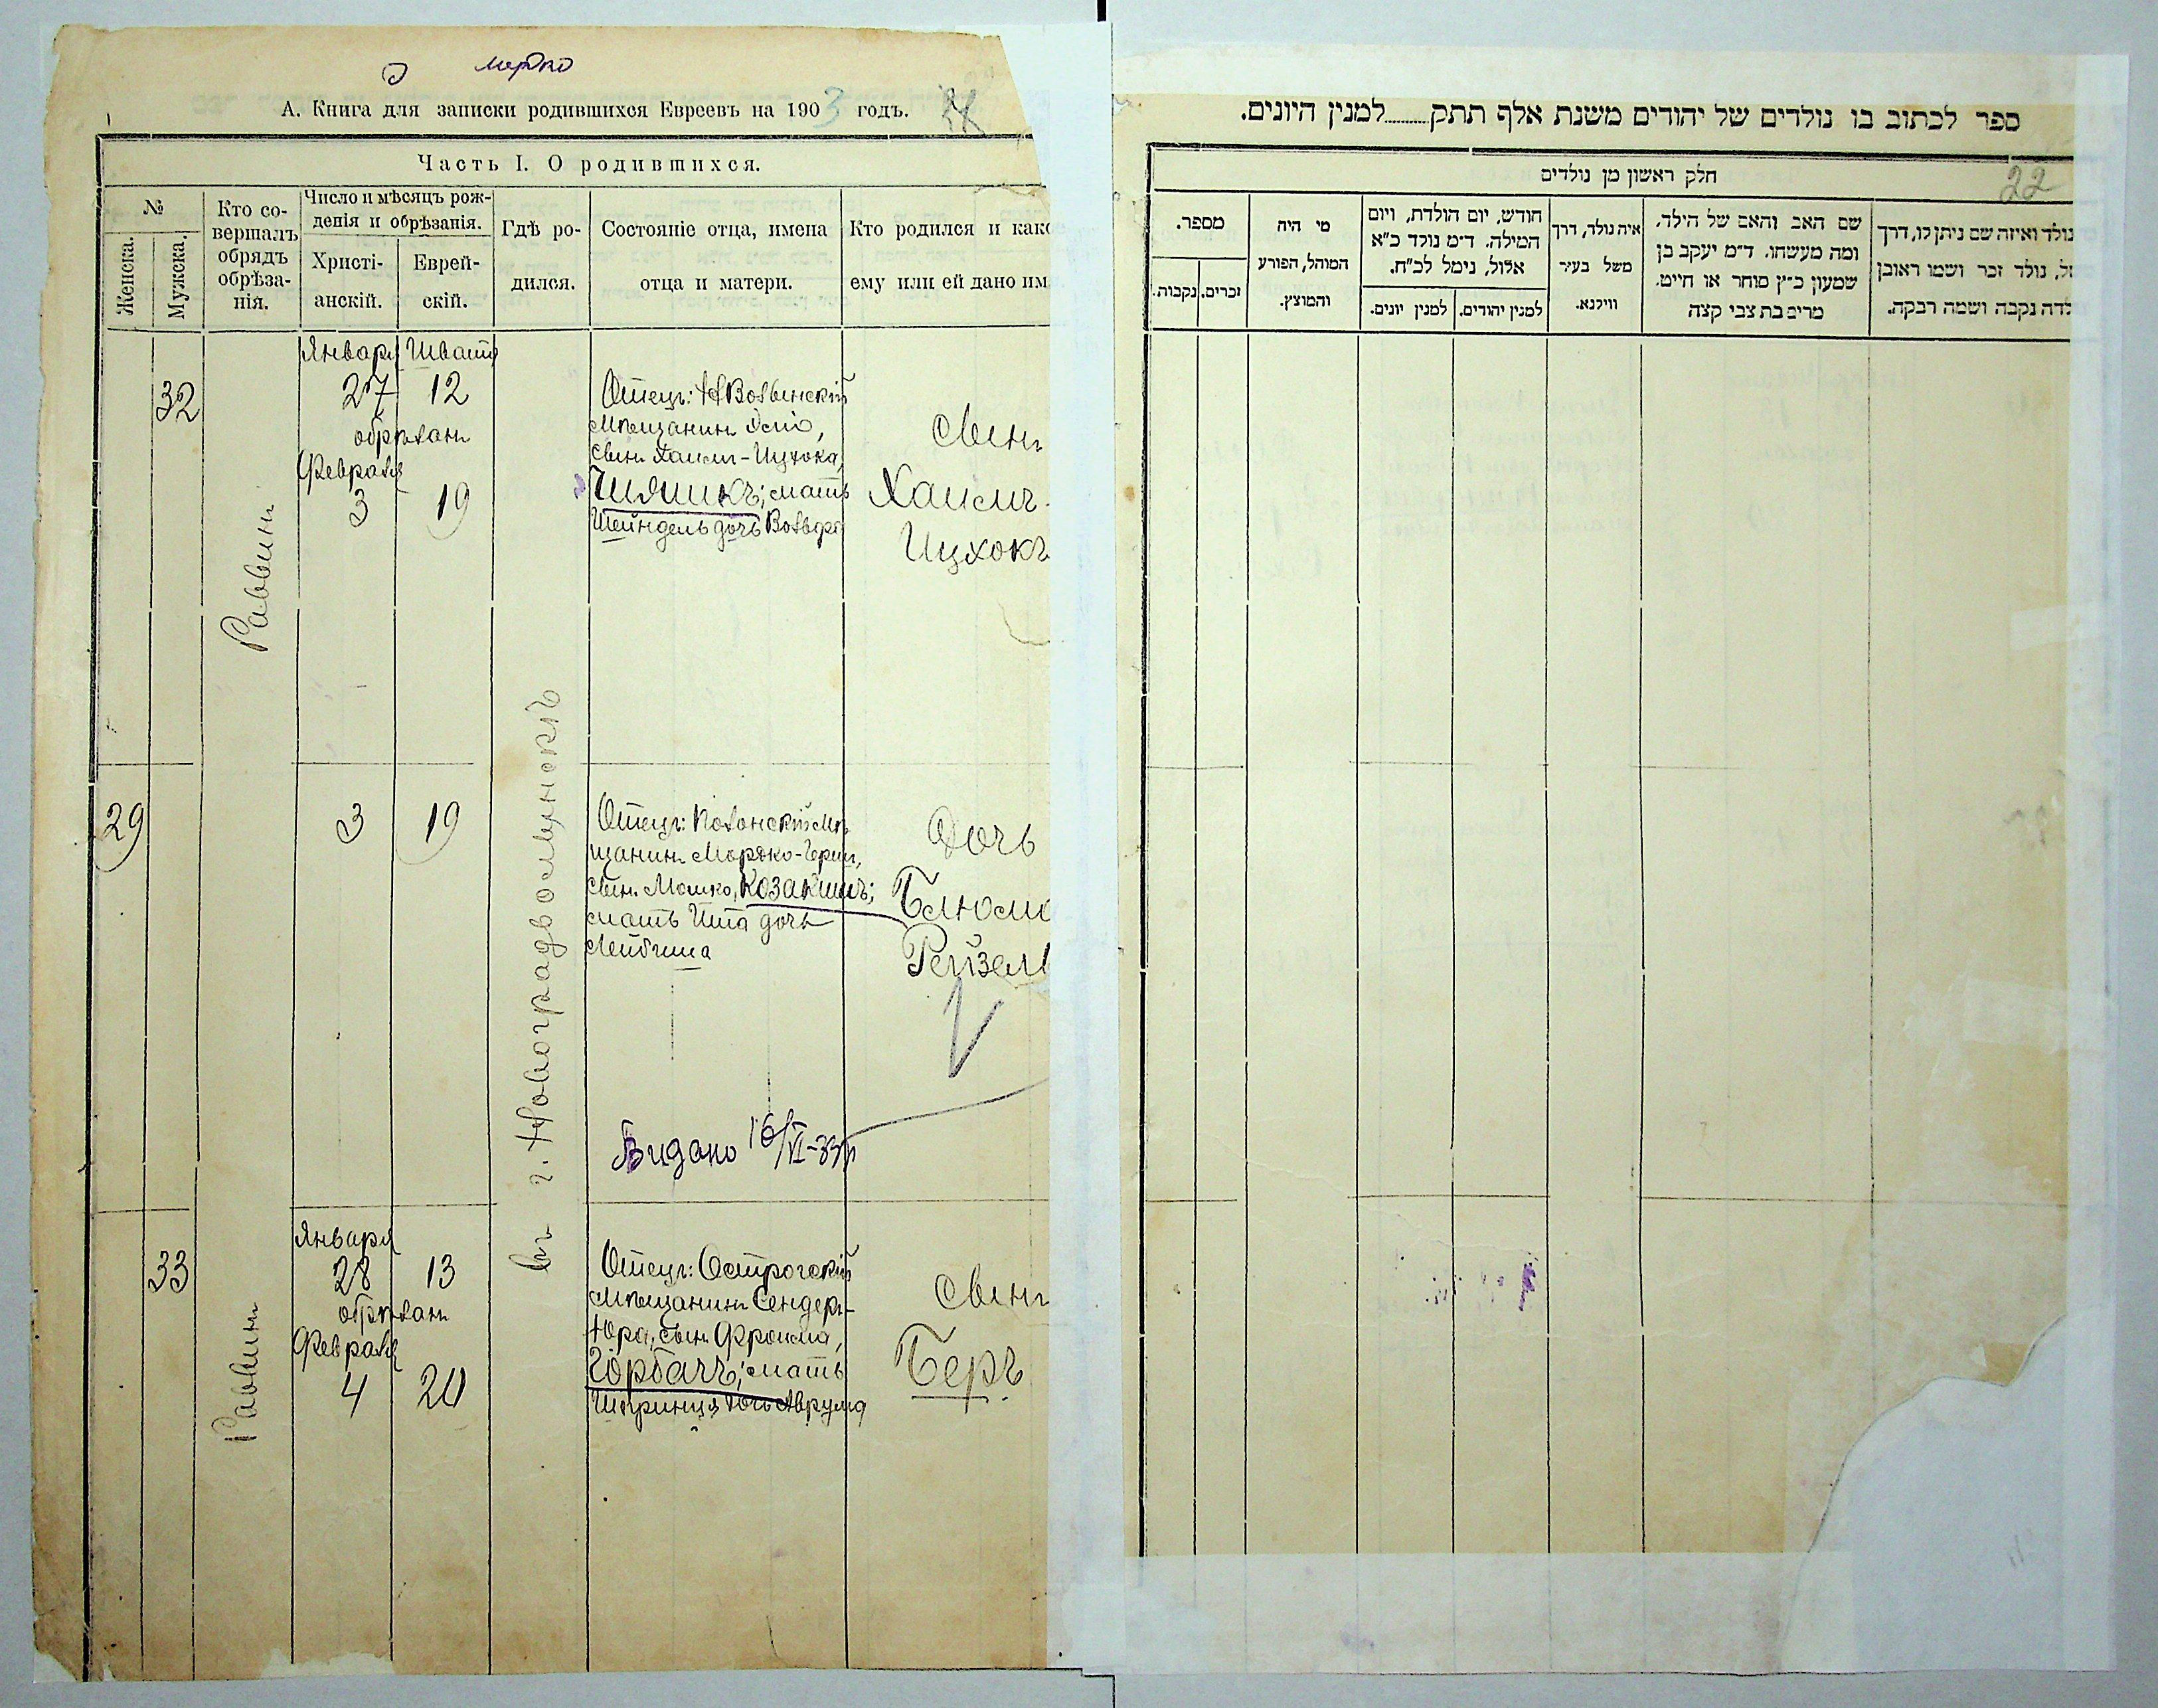 мерко
А. Книга для записки родившихся Евреевъ на 1903 годъ.
Часть I. О родившихся.
№
Женска.
Мужска.
Кто со-
вершалъ
обрядъ
обрѣза-
нія.
Число и мѣсяцъ рож-
денія и обрѣзанія.
Христі-
анскій.
Еврей-
скій.
Гдѣ ро-
дился.
Состояніе отца, имена
отца и матери.
Кто родился и како
ему или ей дано им
32
Раввинъ
Января Швата
27 12
обрѣзанъ
Февраля
3 19
въ г. Новоградволынскъ
Отецъ: Н Волынскій
мѣщанинъ
сынъ Хаимъ-Ицхока,
Шляпикъ; мать
Шейндель дочь Вольфа
сынъ
Хаимъ-
Ицхокъ
29
3 19
Отецъ: Полонскій мѣ-
щанинъ Мордко-Герш,
сынъ Мошко, Козакшъ;
мать Ита дочь
Лейбиша
Дочь
Блюма
Рейзель
Видано 16/VI-39р
33
Раввинъ
Января
28 13
обрѣзанъ
Февраля
4 20
Отецъ: Острогскій
мѣщанинъ Сендеръ-
Юра, сынъ Фроима,
Горбачъ; мать
Шпринця дочь Аврума
сынъ
Беръ
ספר לכתוב בו נולדים של יהודים משנת אלף תתק........למנין היונים.
22
חלק ראשון מן נולדים
מספר.
זכרים.
נקבות.
מי היה
המוהל, הפורע
והמוצץ.
חודש, יום הולדת, ויום
המילה. ד״מ נולד כ״א
אלול, נימל לכ״ח.
למנין יונים.
למנין יהודים.
איה נולד, דרך
משל בעיר
ווילנא.
שם האב והאם של הילד,
ומה מעשהו. ד״מ יעקב בן
שמעון כ״ץ סוחר או חייט.
מרים בת צבי קצה
נולד ואיזה שם ניתן לו, דרך
של, נולד זכר ושמו ראובן
לדה נקבה ושמה רבקה.